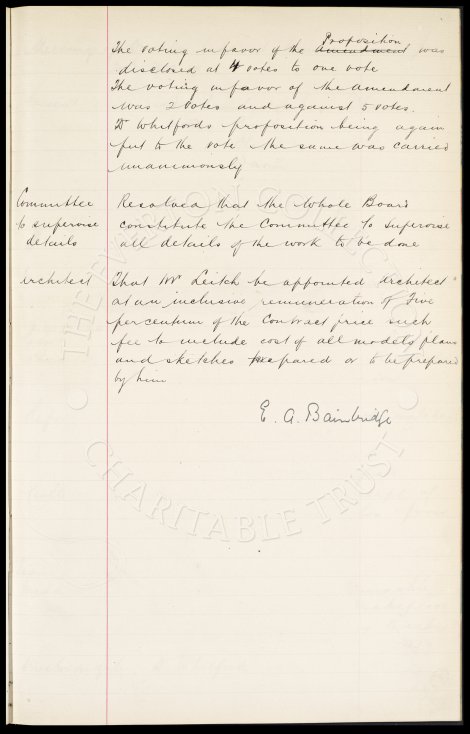 Proposition
The voting in favor of the Amendment was
disclosed at 4 votes to one vote
The voting in favor of the amendment
was 2 votes and against 5 votes.
Dr Whitfords proposition being again
put to the vote the same was carried
unanimously
Committee
to supervise
details
Resolved that the whole Board
constitute the Committee to supervise
all details of the work to be done
Architect
That Mr Leitch be appointed Architect
at an inclusive remuneration of Five
per centum of the Contract price such
fee to include cost of all models plans
and sketches prepared or to be prepared
by him
E. A. Bainbridge
THE EVERTON COLLECTION
CHARITABLE TRUST